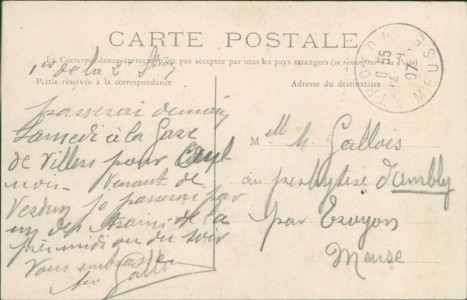 CARTE POSTALE
La Correspondance au recto n'est pas acceptée par tous les pays étrangers (se renseigner
Partie réservée à la correspondance
Adresse du destinataire
TROYON MEUSE
07
de la 2
passerai demain
Samedi à la Gare
de Villers pour
Venant de
Verdun je passerai par
un des trains de la
ou du soir
Vous embrasse
Mell M. Gallois
au presbytère d'Ambly
par Troyon
Meuse